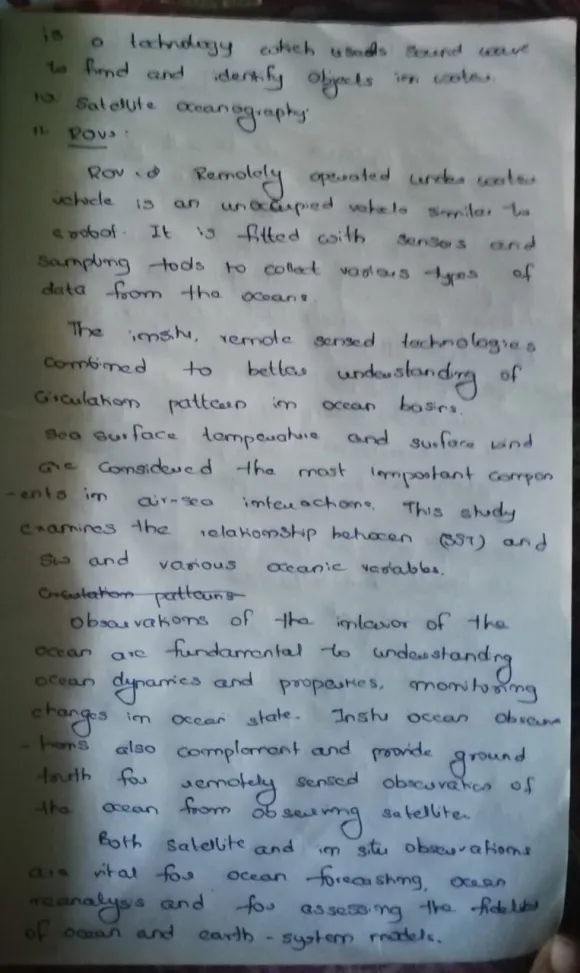 is a technology which useds sound wave
to find and identify objects in water.
10. Satellite oceanography.
11. ROVs:
ROV is Remolely operated under water
vehicle is an unoccupied vehcle similar to
a robot. It is fitted with sensors and
sampling tools to collect various types of
data from the oceans.
The insitu, remote sensed technologies
combined to better understanding of
Circulation pattern in ocean basins.
sea surface temperature and surface wind
are considered the most important compon
-ents in air-sea interactions. This study
examines the relationship between (SST) and
SW and various oceanic variables.
Circulation patterns
Observations of the interior of the
ocean are fundamental to understanding
ocean dynamics and properties, monitoring
changes in ocean state. Insitu ocean observa
-tions also complement and provide ground
truth for remotely sensed observation of
the ocean from observing satellite.
Both Satellite and in situ observations
are vital for ocean forecasting, ocean
reanalysis and for assessing the fidelity
of ocean and earth-system models.